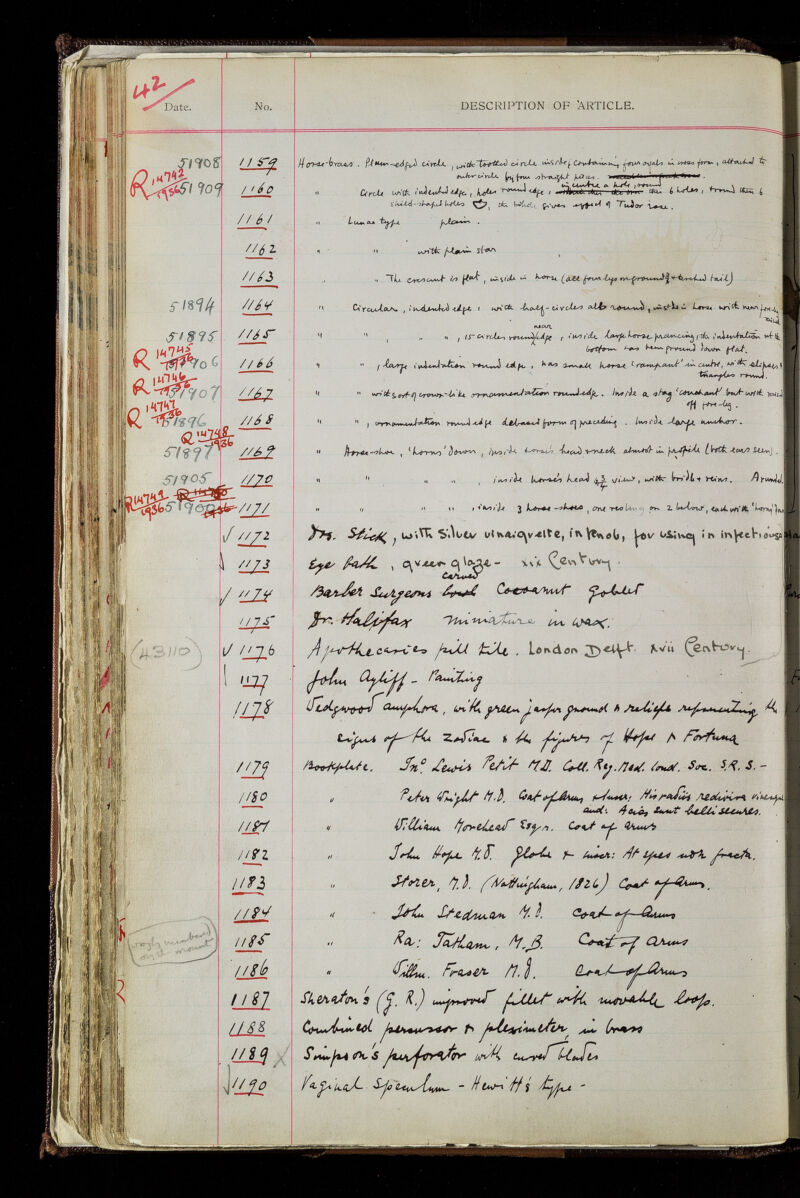 42
Date. No. DESCRIPTION OF ARTICLE.
51908 1159 Horse-brass. Plum-edged circle, with toothed circle inside, containing four ovals in cross form, attached to
outer circle by four straight pieces.
R 14742 1936 51909 1160 " Circle with indented edge, holes round edge, in centre a hole, round this 6 holes, & round them 6
shield-shaped holes, the whole gives effect of Tudor rose.
1161 " Lunar type plain.
1162 " " with plain star
1163 " The crescent is flat, inside a horse (all four legs on ground & docked tail)
51894 1164 " Circular, indented edge, with half-circles all round, inside a horse with near fore-leg
raised
51895 1165 " " " ", 15 circles round near edge, inside large horse prancing, the indentation at the
bottom has been ground down flat.
R 14745 1936 51906 1166 " ", large indentation round edge, has small horse 'rampant' in centre, with elipses &
triangles round.
R 14746 1936 51907 1167 " " with sort of crown-like ornamentation round edge. Inside a stag 'couchant' but with raised
off fore-leg.
R 14747 1936 51896 1168 " ", ornamentation round edge debased form of preceding. Inside large anchor.
R 14748 1936
51897 1169 " Horse-shoe, 'horns' down, inside horse's head & neck almost in profile (both ears seen).
51905 1170 " " " ", inside horse's head ¾ view, with bridle & reins. Arundel.
R 14749 1936 51900 1171 " " " ", inside 3 horse-shoes, one resting on 2 below, each with 'horns'
✓ 1172 Drs. Stick, with Silver vinaigrette, in knob, for using in infectious
1173 Eye Bath, green glaze - xix Century.
✓ 1174 Barber Surgeons carved Cocoanut Goblet
1175 Dr. Halifax miniature in wax.
(43110) ✓ 1176 Apothecaries pill tile. London Delft. xvii Century.
1177 John Ayliff - Painting
1178 Wedgwood amphora, with green jasper ground & reliefs representing the
signs of the Zodiac & the figures of Hope & Fortuna
1179 Bookplate. Jno. Lewis Petit M.D. Coll. Reg. Med. Lond. Soc. S.R.S. -
1180 " Peter Wright M.D. Coat of Arms & inscr: His radiis rediviva
and: Acies sunt belli secures.
1181 " William Morehead Esqr. Coat of arms
1182 " John Hope M.D. Globe & inscr: At spes non fracta.
1183 " Storer, M.D. (Nottingham, 1826) Coat of Arms.
1184 " John Stedman M.D. Coat of Arms
wrongly numbered on the mount 1185 " Ra: Tatham, M.B. Coat of arms
1186 " Willm. Fraser M.D. Coat of Arms
1187 Sheraton's (G. R.) improved fillet with movable loops.
1188 Combined percussor & pleximeter, in brass
1189 X Simpson's perforator with curved blades
✓ 1190 Vaginal Speculum - Hewitt's type -